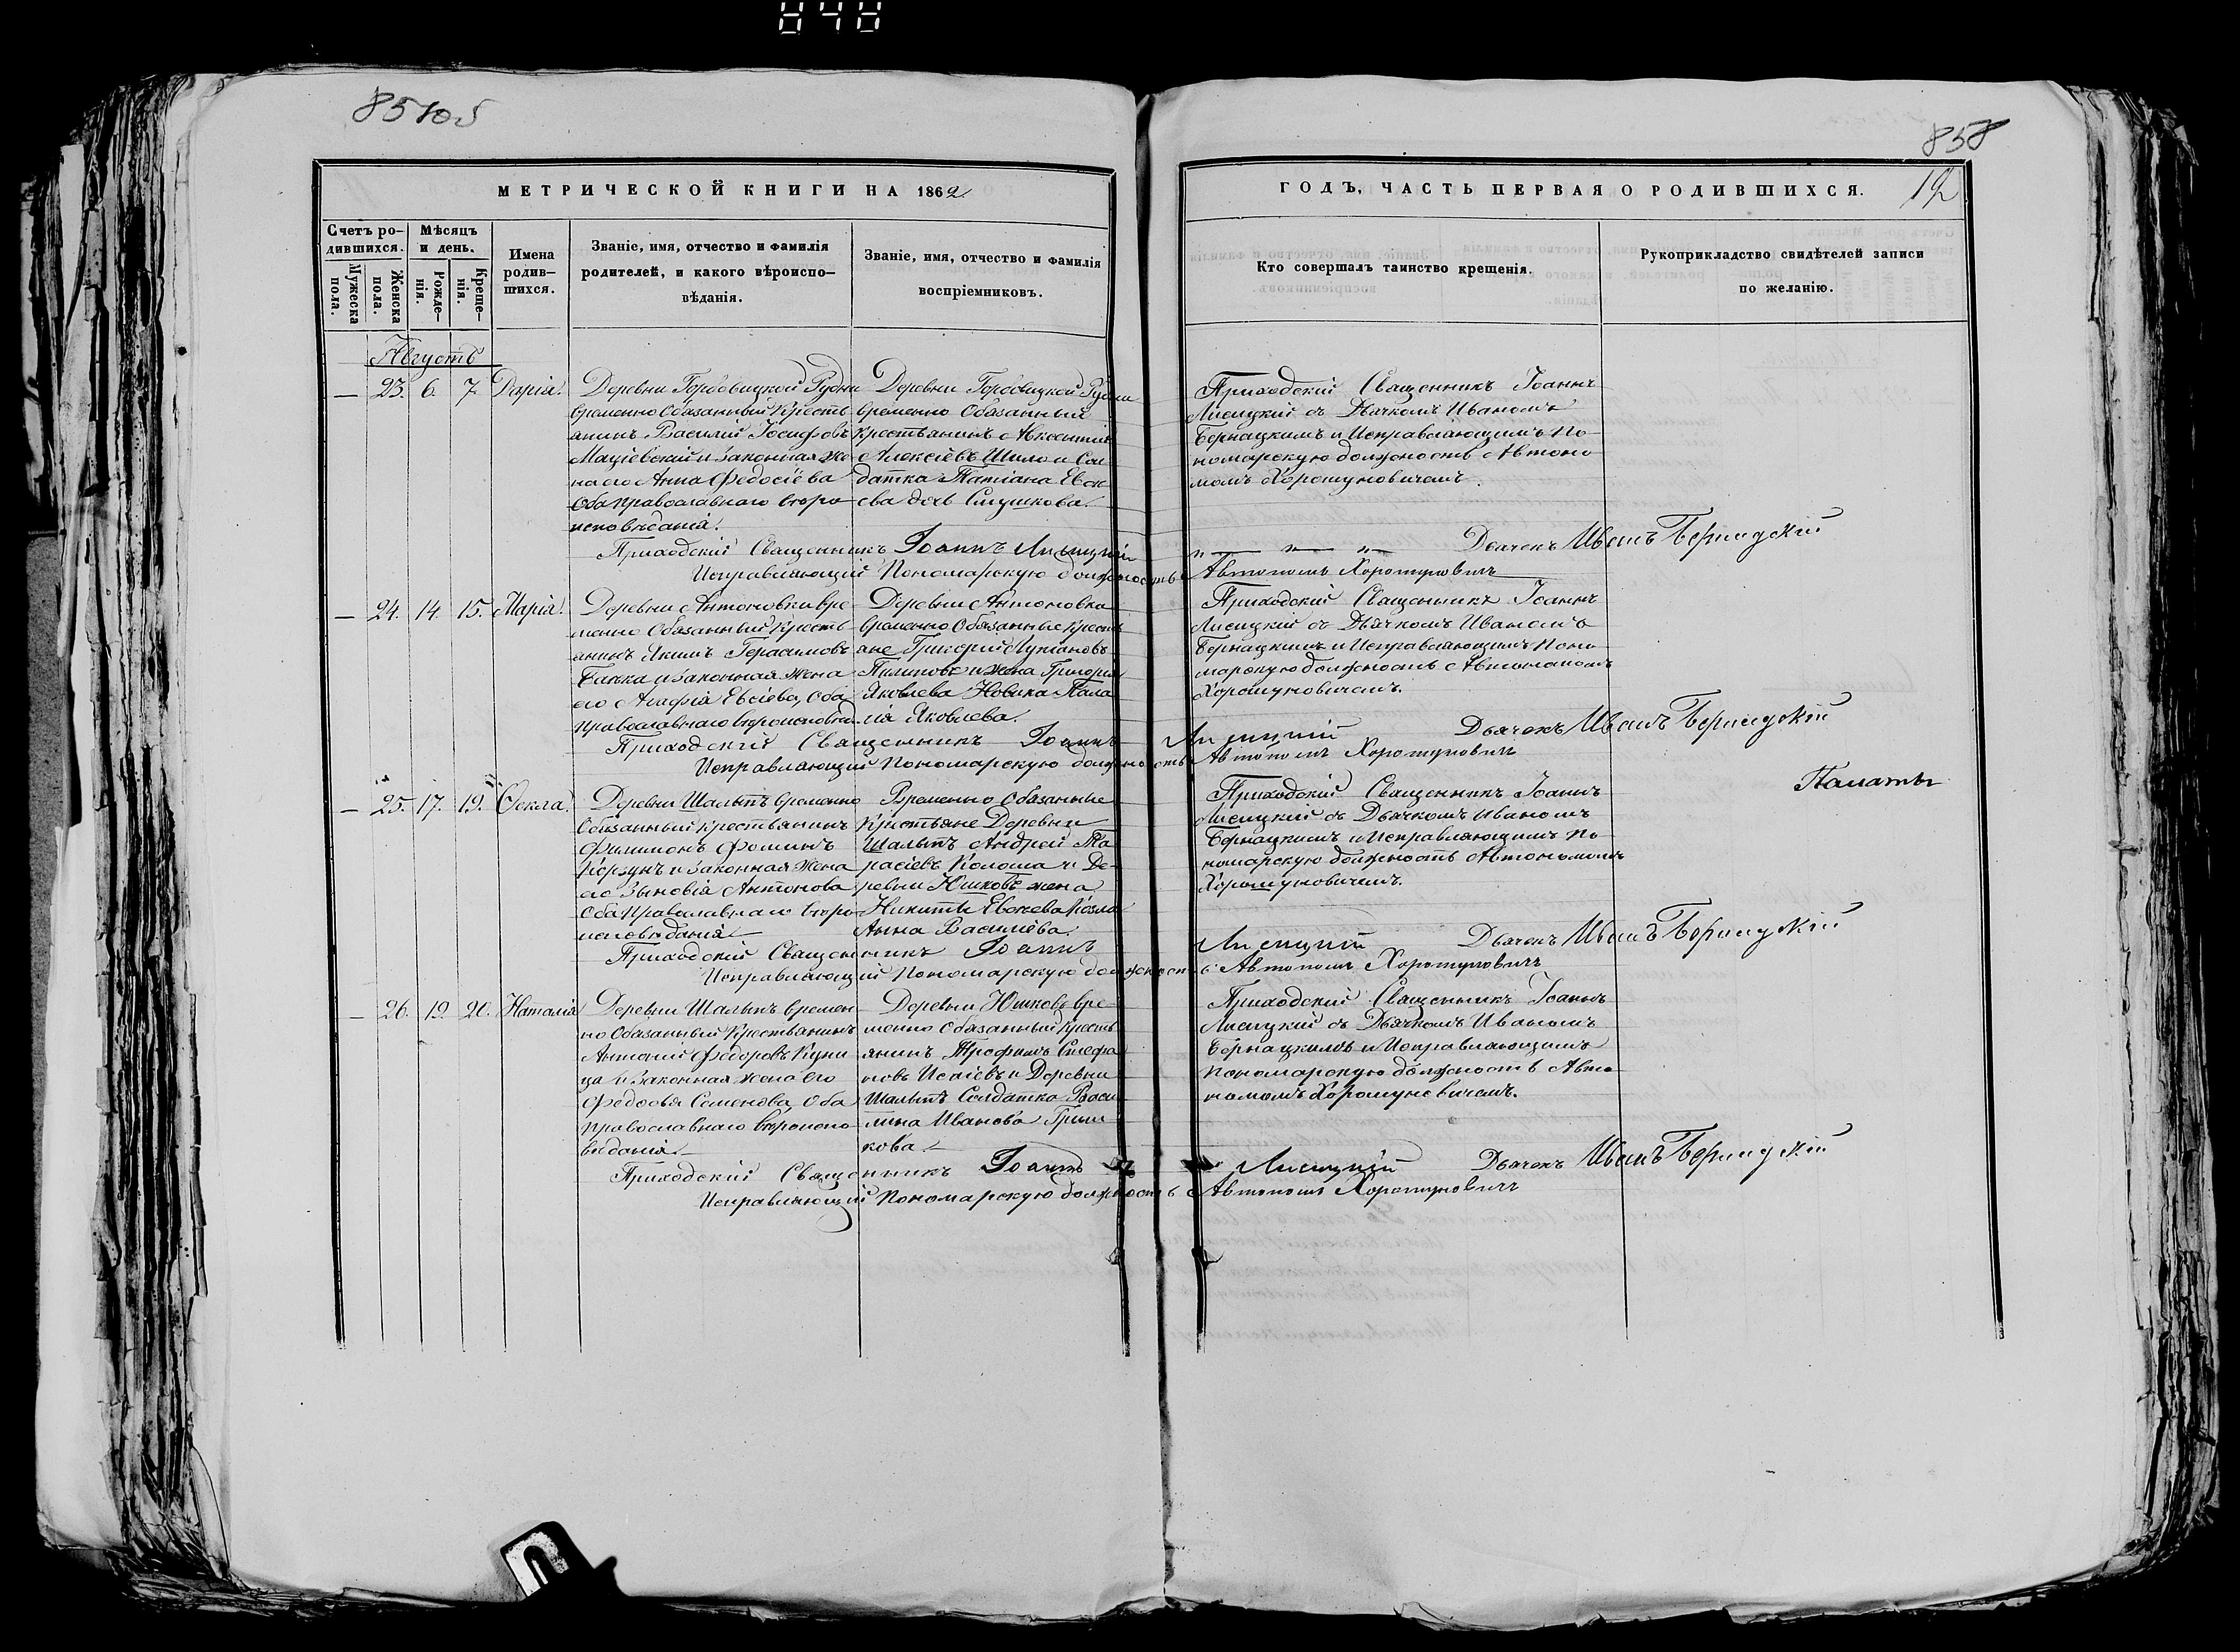 848
857об
858
МЕТРИЧЕСКОЙ КНИГИ НА 1862
ГОДЪ, ЧАСТЬ ПЕРВАЯ О РОДИВШИХСЯ.
12
Счетъ ро-
дившихся.
Мужеска
пола.
Женска
пола.
Мѣсяцъ
и день.
Рожде-
нія.
Креще-
нія.
Имена
родив-
шихся.
Званіе, имя, отчество и фамилія
родителей, и какого вѣроиспо-
вѣданія.
Званіе, имя, отчество и фамилія
воспріемниковъ.
Кто совершалъ таинство крещенія.
Рукоприкладство свидѣтелей записи
по желанію.
Августъ
— 23. 6. 7. Дарія.
Деревни Горбовицкой Рудни
временно Обязанный Кресть-
янинъ Василій Іосифовъ
Мацiевскій и Законная же-
на его Анна Федосіева
Оба Православнаго вѣро-
исповѣданія.
Деревни Горбовицкой Рудни
временно Обязанный
Крестьянинъ Авксентій
Алексіевъ Шило и Сол-
датка Татіана Евсе-
ева дочь
Приходскій Священникъ Іоаннъ
Лисицкій съ Дьячкомъ Иваномъ
Бернацкимъ и Исправляющимъ По-
номарскую должность Автоно-
момъ Хорошуновичемъ.
Приходскій Священникъ Іоаннъ Лисицкій
Дьячекъ Иванъ Бернадскій
Исправляющій Пономарскую должность Автономъ Хорошуновичъ
— 24. 14. 15. Марія.
Деревни Антоновки вре-
менно Обязанный Кресть-
янинъ Якимъ Герасимовъ
и Законная Жена
его Агафія Евсіева, Оба
Православнаго вѣроисповѣда-
Деревни Антоновка
временно Обязанные Кресть-
яне Григорій Лукіановъ
и жена Григорія
Яковлева Новика Пала-
гія Яковлева.
Приходскій Священникъ Іоаннъ
Лисицкій съ Дьячкомъ Иваномъ
Бернацкимъ и Исправляющимъ Поно-
марскую должность Автономомъ
Хорошуновичемъ.
Приходскій Священникъ Іоаннъ Лисицкій
Дьячекъ Иванъ Бернадскій
Исправляющій Пономарскую должность Автономъ Хорошуновичъ
Палаты
— 25. 17. 19. Ѳекла.
Деревни Шалыпъ временно
Обязанный крестьянинъ
Филимонъ Фоминъ
Корзунъ и Законная Жена
его Зиновія Антонова
Оба Православнаго вѣро-
исповѣданія
Временно Обязанные
Крестьяне Деревни
Шалыпъ Андрей Та-
расіевъ и Де-
ревни Юшковъ жена
Никиты Евсеева
Анна Василіева.
Приходскій Священникъ Іоаннъ
Лисицкій съ Дьячкомъ Иваномъ
Бернацкимъ и Исправляющимъ По-
номарскую должность Автономомъ
Хорошуновичемъ.
Приходскій Священникъ Іоаннъ Лисицкій
Дьячекъ Иванъ Бернадскій
Исправляющій Пономарскую должность Автономъ Хорошуновичъ
— 26. 19. 20. Наталія
Деревни Шалыпъ времен-
но Обязанный Крестьянинъ
Антоній Федоровъ Купи-
ца и Законная жена его
Федосья Семенова, Оба
Православнаго вѣроиспо-
вѣданія
Деревни Юшковъ вре-
менно Обязанный Кресть-
янинъ Трофимъ Стефа-
новъ и Деревни
Шалыпъ Солдатка Васи-
лина Иванова Гриш-
кова
Приходскій Священникъ Іоаннъ
Лисицкій съ Дьячкомъ Иваномъ
Бернацкимъ и Исправляющимъ
Пономарскую должность Авто-
номомъ Хорошуновичемъ.
Приходскій Священникъ Іоаннъ Лисицкій
Дьячекъ Иванъ Бернадскій
Исправляющій Пономарскую должность Автономъ Хорошуновичъ